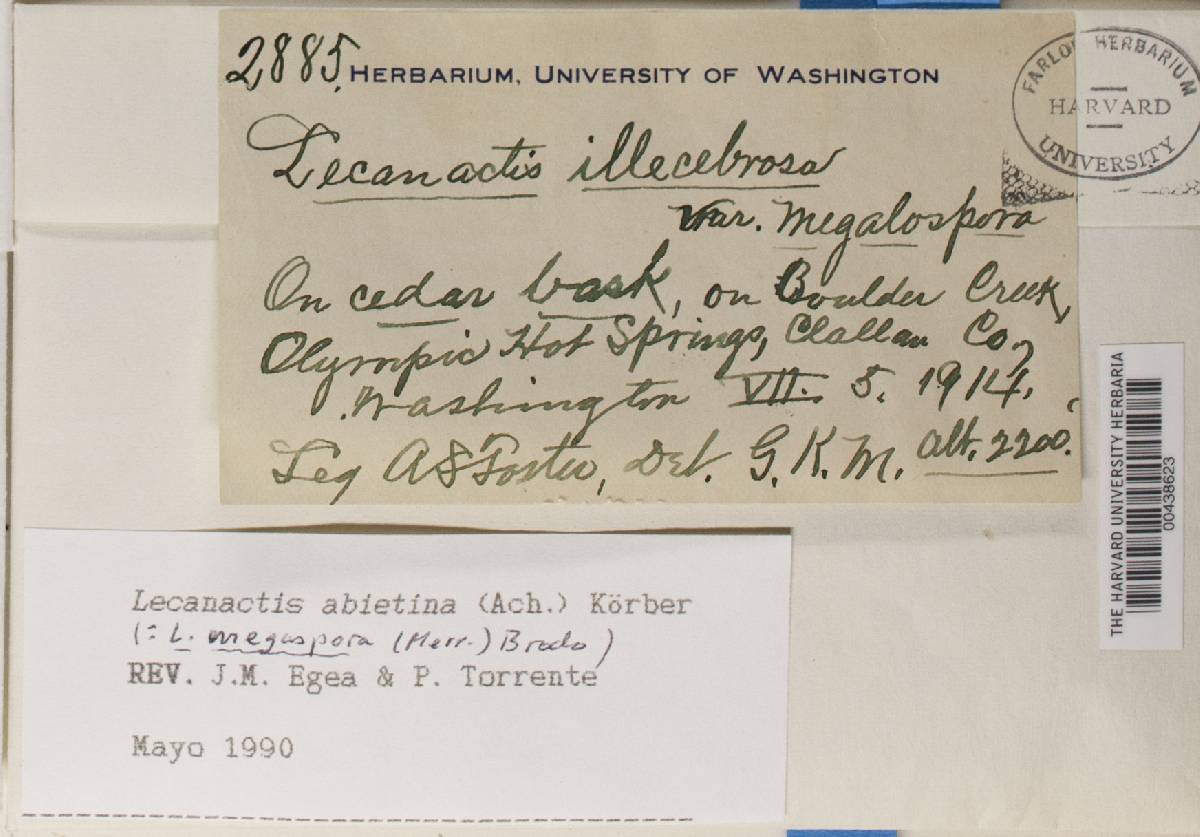 2885.
HERBARIUM, UNIVERSITY OF WASHINGTON
FARLOW HERBARIUM
HARVARD
UNIVERSITY
Lecanactis illecebrosa
var. megalospora
On cedar bark, on Boulder Creek,
Olympic Hot Springs, Clallam Co.,
Washington VII. 5. 1914.
Leg A S Foster, Det. G. K. M. alt. 2200.
THE HARVARD UNIVERSITY HERBARIA
00438623
Lecanactis abietina (Ach.) Körber
(= L. megaspora (Merr.) Brodo)
REV. J.M. Egea & P. Torrente
Mayo 1990